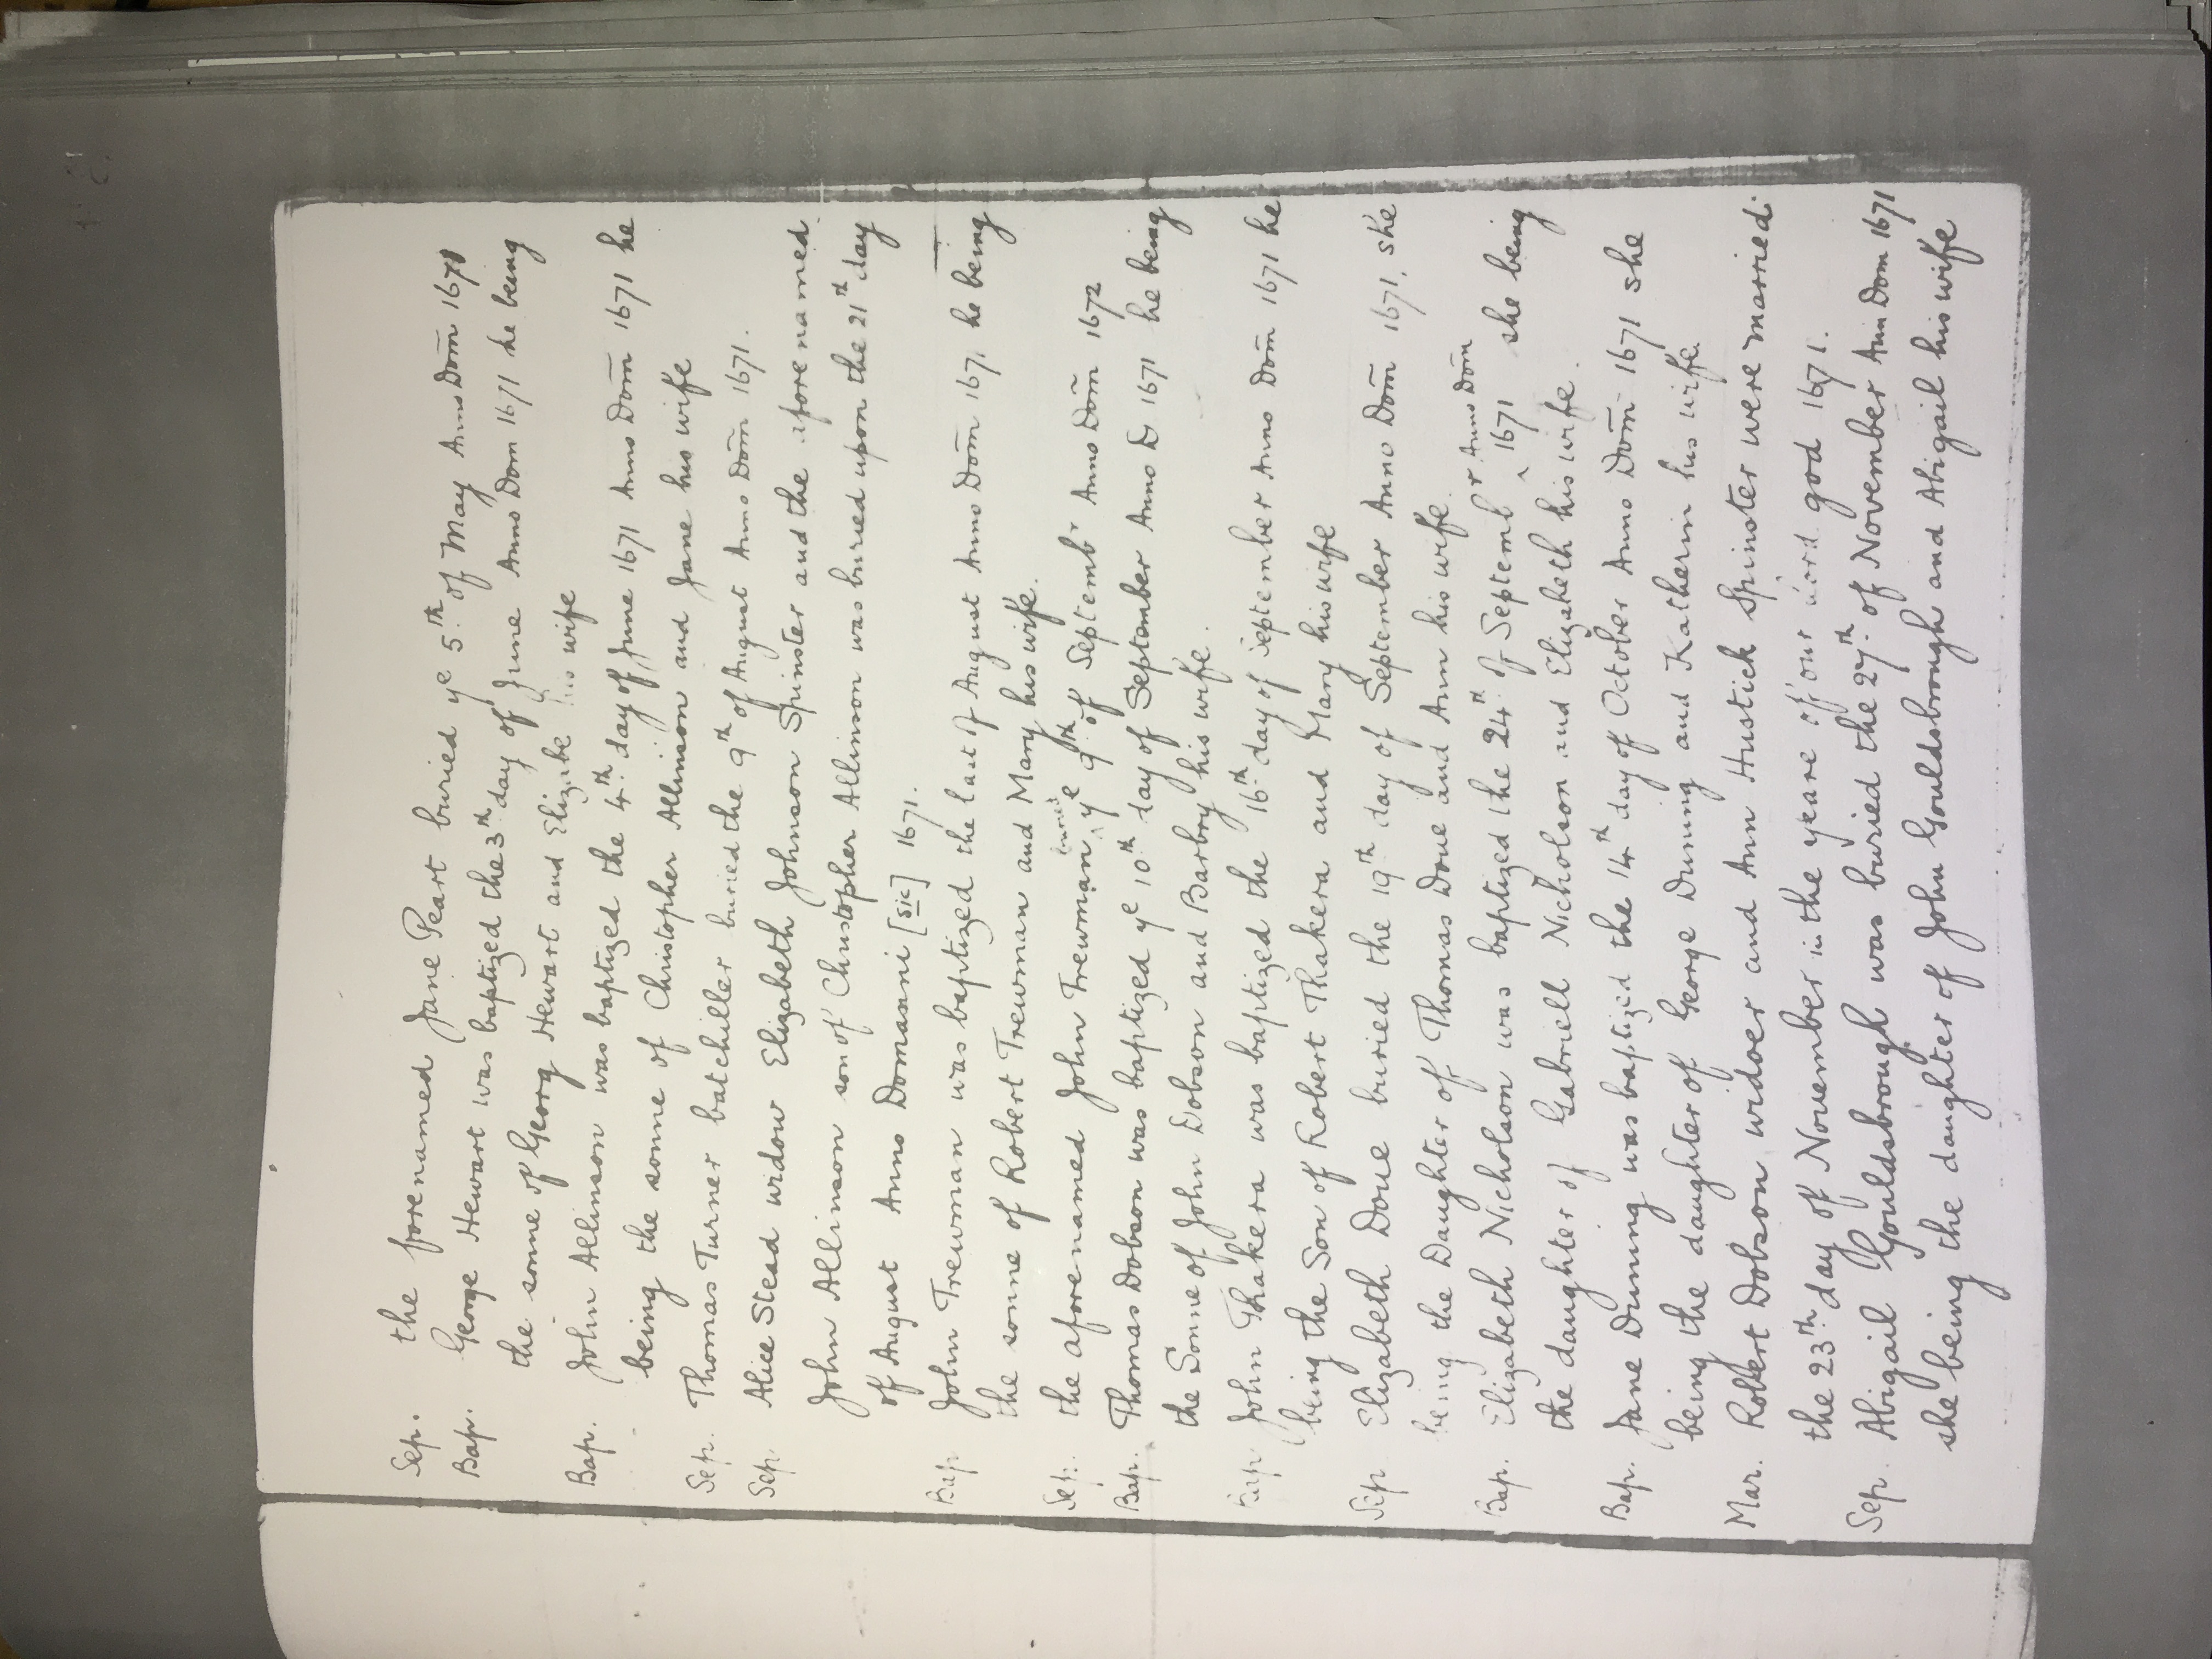 Sep. the forenamed Jane Peart buried yᵉ 5ᵗʰ of May Anno Dom̄ 1671
Bap. George Hewart was baptized the 3ᵗʰ day of June Anno Dom 1671 he being
the sonne of Georg Hewart and Elizabe his wife
Bap. John Allinson was baptized the 4ᵗʰ day of June 1671 Anno Dom̄ 1671 he
being the sonne of Christopher Allinson and Jane his wife
Sep. Thomas Turner batchiller buried the 9ᵗʰ of August Anno Dom̄ 1671.
Sep. Alice Stead widow Elizabeth Johnson Spinster and the aforenamed
John Allinson son of Christopher Allinson was buried upon the 21ᵗʰ day
of August Anno Domasni [sic] 1671.
Bap John Trewman was baptized the last of August Anno Dom̄ 1671 he being
the sonne of Robert Trewman and Mary his wife.
Sep. the aforenamed John Trewman ^ buried yᵉ 9ᵗʰ of Septembʳ Anno Dom̄ 1672
Bap. Thomas Dobson was baptized yᵉ 10ᵗʰ day of September Anno D 1671 he being
the Sonne of John Dobson and Barbry his wife.
Bap John Thakera was baptized the 16ᵗʰ day of September Anno Dom̄ 1671 he
being the Son of Robert Thakera and Mary his wife
Sep Elizabeth Doue buried the 19ᵗʰ day of September Anno Dom̄ 1671, she
being the Daughter of Thomas Doue and Ann his wife.
Bap. Elizabeth Nicholson was baptized the 24ᵗʰ of Septembʳ ^ Anno Dom̄ 1671 she being
the daughter of Gabriell Nicholson and Elizabeth his wife.
Bap. Jane Dunning was baptized the 14ᵗʰ day of October Anno Dom̄ 1671 she
being the daughter of George Dunning and Katherin his wife.
Mar. Robert Dobson widoer and Ann Hustick Spinster were married
the 23ᵗʰ day of Nouember in the yeare of our god 1671.
Sep. Abigail Gouldsbrough was buried the 27ᵗʰ of November Ann Dom 1671
she being the daughter of John Gouldsbrough and Abigail his wife